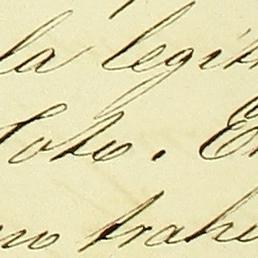 la legit
Soto. E
no trahi